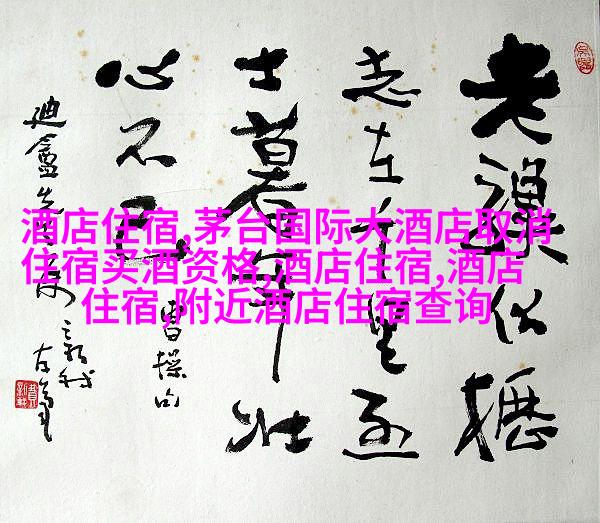 酒店住宿,茅台国际大酒店取消
住宿买酒资格,酒店住宿,酒店
住宿,附近酒店住宿查询
老驥伏櫪
志在千里烈
士暮年壮
心不已
曹操句
迪盦先生